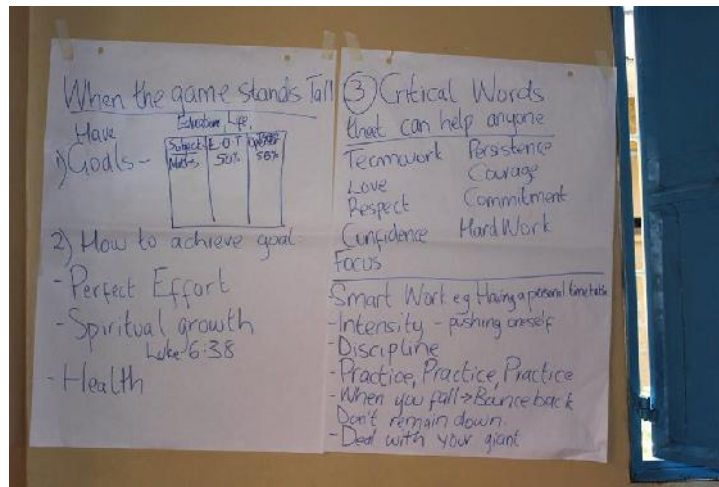 When the game stands Tall
Have
1) Goals -
Education, Life,
Subject E.O.T
Maths 50% 56%
2) How to achieve goal
- Perfect Effort
- Spiritual growth
Luke 6:38
- Health
③ Critical Words
that can help anyone
Teamwork Persistence
Love Courage
Respect Commitment
Confidence Hard Work
Focus
Smart Work eg Having a personal timetable
- Intensity - pushing oneself
- Discipline
- Practice, Practice, Practice
- When you fall → Bounce back
Don't remain down.
- Deal with your giant